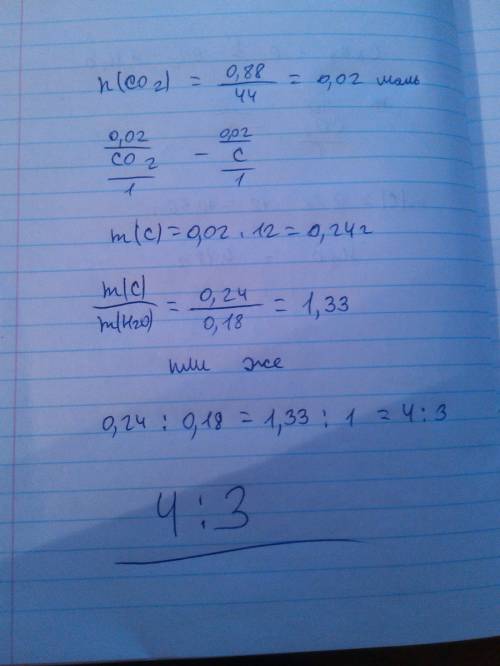 n(CO2) = 0,88/44 = 0,02 моль
0,02/CO2/1 - 0,02/C/1
m(C) = 0,02 · 12 = 0,24г
m(C)/m(H2O) = 0,24/0,18 = 1,33
или же
0,24 : 0,18 = 1,33 : 1 = 4 : 3
4 : 3